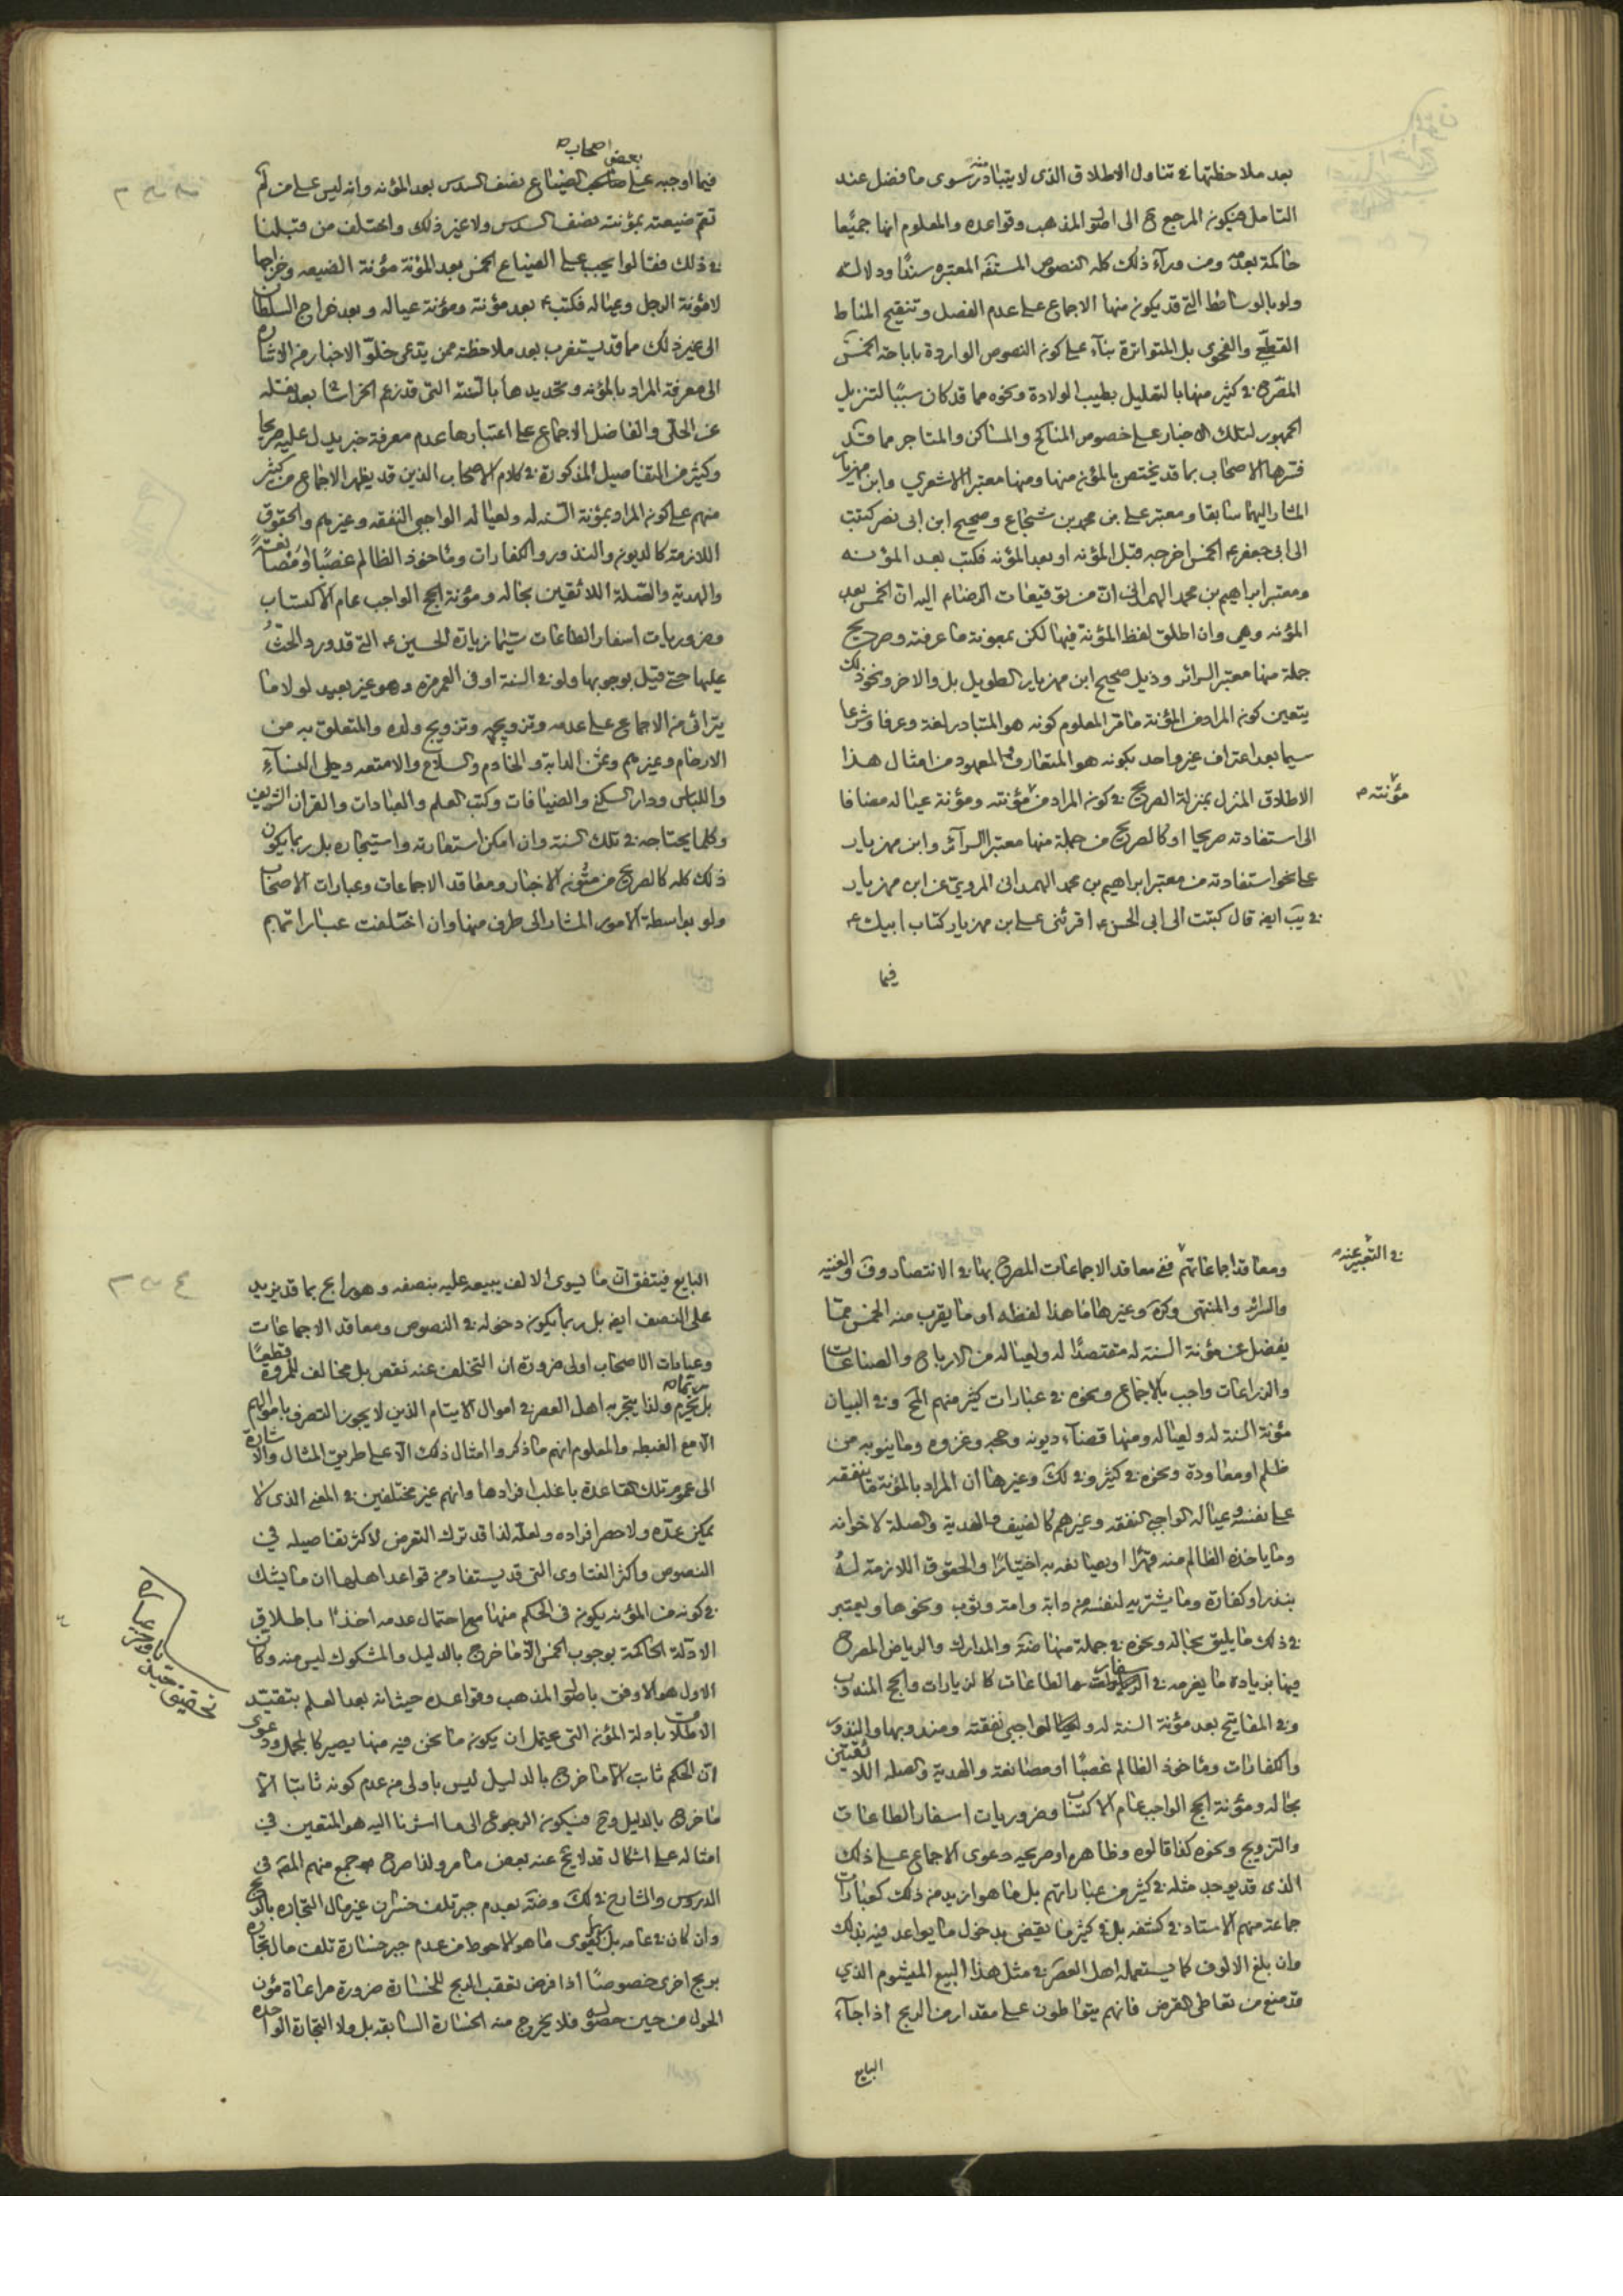 بعد ملاحظتها في تناول الاطلاق الذى لا يتبادر منه سوى ما فضل عند
التامل فيكون المرجع ح الى اصول المذهب وقواعده والمعلوم انها جميعا
حاكمة بعدمه ومن ورآء ذلك كله النصوص المستفيضة المعتبره سندًا ودلالته
ولو بالوسائط التي قد يكون منها الاجماع على عدم الفصل وتنقيح المناط
القطعي والفحوى بل المتواترة بنآء على كون النصوص الواردة باباحة الخمس
المصرح في كثير منها بالتعليل بطيب الولادة ونحوه مما قد كان سببًا لتنزيل
الجمهور لتلك الاخبار على خصوص المناكح والمساكن والمتاجر مما قد
فسرها الاصحاب بما قد يختص بالمؤن منها ومنها معتبر الاشعري وابن مهزيار
المشار اليهما سابقا ومعتبر على بن محمد بن شجاع وصحيح ابن ابى نصر كتبت
الى ابى جعفر ع الخمس اخرجه قبل المؤنه او بعد المؤنه فكتب بعد المؤنه
ومعتبر ابراهيم بن محمد الهمدانى ان من توقيعات الرضا ع اليه ان الخمس بعد
المؤنه وهي وان اطلق لفظ المؤنة فيها لكن بمعونة ما عرفته وصريح
جملة منها معتبر السرائر وذيل صحيح ابن مهزيار الطويل بل والاخر ونحو ذلك
يتعين كون المراد من المؤنة ما قر المعلوم كونه هو المتبادر لغة وعرفا وشرعا
سيما بعد اعتراف غير واحد بكونه هو المتعارف المعهود من امثال هذا
الاطلاق المنزل بمنزلة الصريح في كون المراد من مؤنته ومؤنة عياله مضافا
مؤنته م
الى استفادته صريحا او كالصريح من جملة منها معتبر السرآئر وابن مهزيار
على نحو استفادته من معتبر ابراهيم بن محمد الهمدانى المروي عن ابن مهزيار
في يب ايضا قال كتبت الى ابى الحسن ع اقرئنى على بن مهزيار كتاب ابيك ع
فيما
بعض اصحابه
فيما اوجبه على صاحب الضياع نصف السدس بعد المؤنه وانه ليس على من لم
تقم ضيعته بمؤنته نصف السدس ولا غير ذلك واختلف من قبلنا
في ذلك فقالوا يجب على الضياع الخمس بعد المؤنة مؤنة الضيعه وخراجها
لا مؤنة الرجل وعياله فكتب ع بعد مؤنته ومؤنة عياله وبعد خراج السلطان
الى غير ذلك مما قد يستغرب بعد ملاحظته ممن يدعى خلو الاخبار من الاشارة
الى معرفة المراد بالمؤنه وتحديدها بالسنة التى قد زعم الخراسانى بعد نقله
عن الحلى والفاضل الاجماع على اعتبارها عدم معرفة خبر يدل عليه صريحا
وكثير من التفاصيل المذكورة في كلام الاصحاب الذين قد يظهر الاجماع من كثير
منهم على كون المراد بمؤنة السنه له ولعياله الواجبى النفقه وغيرهم والحقوق
اللازمة كالديون والنذور والكفارات وماخوذ الظالم غصبًا او مصانعة
والهدية والصلة اللائقين بحاله ومؤنة الحج الواجب عام الاكتساب
وضروريات اسفار الطاعات سيما زيارة الحسين ع التى قد ورد الحث
عليها حتى قيل بوجوبها ولو في السنة او فى العمر مرة وهو غير بعيد لولا ما
يترائى من الاجماع على عدمه وتزويجه وتزويج ولده والمتعلق به من
الارحام وغيرهم وثمن الدابة والخادم والسلاح والامتعه وحلى النسآء
واللباس ودار السكنى والضيافات وكتب العلم والعبادات والقران الشريف
وكلما يحتاجه في تلك السنة وان امكن استعارته واستيجاره بل ربما يكون
ذلك كله كالصريح من متون الاخبار ومعاقد الاجماعات وعبارات الاصحاب
ولو بواسطة الامور المشار الى طرف منها وان اختلفت عباراتهم
في التعبير عنه م
ومعاقد اجماعاتهم ففي معاقد الاجماعات المصرح بها في الانتصار وف والغنيه
والسرائر والمنتهى وكرة وغيرها ما هذا لفظه او ما يقرب منه الخمس مما
يفضل عن مؤنة السنة له مقتصدًا له ولعياله من الارباح والصناعات
والزراعات واجب بالاجماع ونحوه في عبارات كثير منهم المح وفي البيان
مؤنة السنة له ولعياله ومنها قضآء ديونه وحجه وغزوه وما ينوبه من
ظلم او معاودة ونحوه في كثير وفي لك وغيرها ان المراد بالمؤنة ما ينفقه
على نفسه وعياله الواجبى النفقه وغيرهم كالضيف والهدية والصلة لاخوانه
وما ياخذه الظالم منه قهرًا او يصانعه به اختيارًا والحقوق اللازمة له
بنذر او كفارة وما يشتريه لنفسه من دابة وامة وثوب ونحوها ويعتبر
في ذلك ما يليق بحاله ونحوه في جملة منها ضة والمدارك والرياض المصرح
فيها بزيادة ما يغرمه في اسفار الطاعات كالزيارات والحج المندوب
وفي المفاتيح بعد مؤنة السنة له ولعياله الواجبى نفقته ومندوبها والنذور
والكفارات وماخوذ الظالم غصبًا او مصانعة والهدية والصله اللائقين
بحاله ومؤنة الحج الواجب عام الاكتساب وضروريات اسفار الطاعات
والتزويج ونحوه كذا قالوه وظاهره او صريحه دعوى الاجماع على ذلك
الذى قد يوجد مثله في كثير من عباراتهم بل ما هو ازيد من ذلك كعبارات
جماعة منهم الاستاد في كشفه بل في كثير ما يقضى بدخول ما يواعد فيه بذلك
وان بلغ الالوف كما يستعمله اهل العصر في مثل هذا البيع الميشوم الذي
قد منع من تعاطى القرض فانهم يتواطون على مقدار من الربح اذا جآء
البايع
البايع فيتفق ان ما يسوى الالف يبيعه عليه بنصفه وهو رابح بما قد يزيد
على النصف ايضا بل ربما يكون دخوله في النصوص ومعاقد الاجماعات
وعبارات الاصحاب اولى ضرورة ان التخلف عنه نقص بل مخالف للمروة قطعًا
بل يحرم ولذا يتجر به اهل العصر في اموال الايتام الذين لا يجوز التصرف باموالهم
الا مع الغبطه والمعلوم انهم ما ذكروا امثال ذلك الا على طريق المثال والاشارة
الى عموم تلك القاعدة باغلب افرادها وانهم غير مختلفين في المعنى الذى لا
يمكن عده ولا حصر افراده ولعله لذا قد ترك التعرض لاكثر تفاصيله في
النصوص واكثر الفتاوى التى قد يستفاد من قواعد اهلها ان ما يشك
في كونه من المؤنه يكون فى الحكم منها مع احتمال عدمه اخذًا باطلاق
الادلة الحاكمة بوجوب الخمس الا ما خرج بالدليل والمشكوك ليس منه وكان
الاول هو الاوفق باصول المذهب وقواعده حيث انه بعد العلم بتقييد
الاطلاق بادلة المؤنه التى يحتمل ان يكون ما نحن فيه منها يصير كالمجمل ودعوى
ان الحكم ثابت الا ما خرج بالدليل ليس باولى من عدم كونه ثابتا الا
ما خرج بالدليل وح فيكون الرجوع الى ما اشرنا اليه هو المتعين في
امثاله على اشكال قد لا يخ عنه بعض ما مر ولذا صرح جمع منهم المصة في
الدروس والشارح في لك وضة بعدم جبر تلف خسران غير مال التجاره بالربح
وان كان في عامه بل قد يقوى ما هو الاحوط من عدم جبر خسارة تلف مال تجارة
بربح اخرى خصوصًا اذا فرض تعقب الربح للخسارة ضرورة مراعاة مؤن
الحول من حين حصوله فلا يخرج منه الخسارة السابقه بل ولا التجارة الواحده